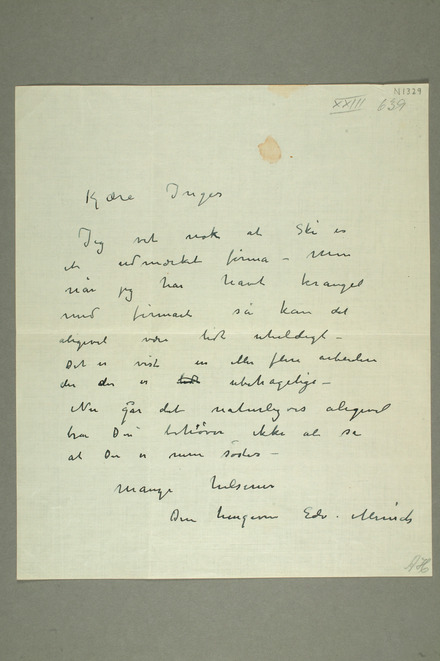 N1329
XXIII 639
Kjære Inger
Jeg vet nok at Ski er
et udmærket firma – Men
når jeg har havt krangel
med firmaet så kan det
aligevel være lidt uheldigt –
Det er visst en eller flere arbeidere
der der er ubehagelige –
Nu går det naturligvis aligevel
bra Du behöver ikke at se
at Du er min söster –
Mange hilsener
Din Edv. Munch